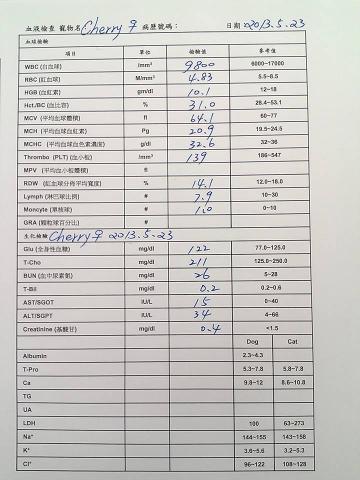 血液檢查 寵物名 Cherry ♀ 病歷號碼： 日期 2013.5.23
血球檢驗
項目 單位 檢驗值 參考值
WBC (白血球) /mm³ 9800 6000~17000
RBC (紅血球) M/mm³ 4.83 5.5~8.5
HGB (血紅素) gm/dl 10.1 12~18
Hct./BC (血比容) % 31.0 28.4~53.1
MCV (平均血球體積) fl 64.1 60~77
MCH (平均血球血紅素) Pg 20.9 19.5~24.5
MCHC (平均血球血色素濃度) g/dl 32.6 32~36
Thrombo (PLT) (血小板) /mm³ 139 186~547
MPV (平均血小板體積) fl
RDW (紅血球分佈平均寬度) % 14.1 12.0~16.0
Lymph (淋巴球比例) # 7.9 10~30
Moncyte (單核球) # 1.0 0~10
GRA (顆粒球百分比) #
生化檢驗 Cherry ♀ 2013.5.23
Glu (全身性血糖) mg/dl 122 77.0~125.0
T-Cho mg/dl 211 125.0~250.0
BUN (血中尿素氮) mg/dl 26 5~28
T-Bil mg/dl 0.2 0.2~0.6
AST/SGOT IU/L 15 0~40
ALT/SGPT IU/L 34 4~66
Creatinine (基酸甘) mg/dl 0.4 <1.5
Dog Cat
Albumin 2.3~4.3
T-Pro 5.3~7.8 5.8~7.8
Ca 9.8~12 8.6~10.8
TG
UA
LDH 100 63~273
Na⁺ 144~155 143~158
K⁺ 3.6~5.6 3.2~5.3
Cl⁺ 96~122 108~128